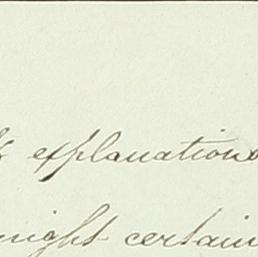 & explanations
might certain